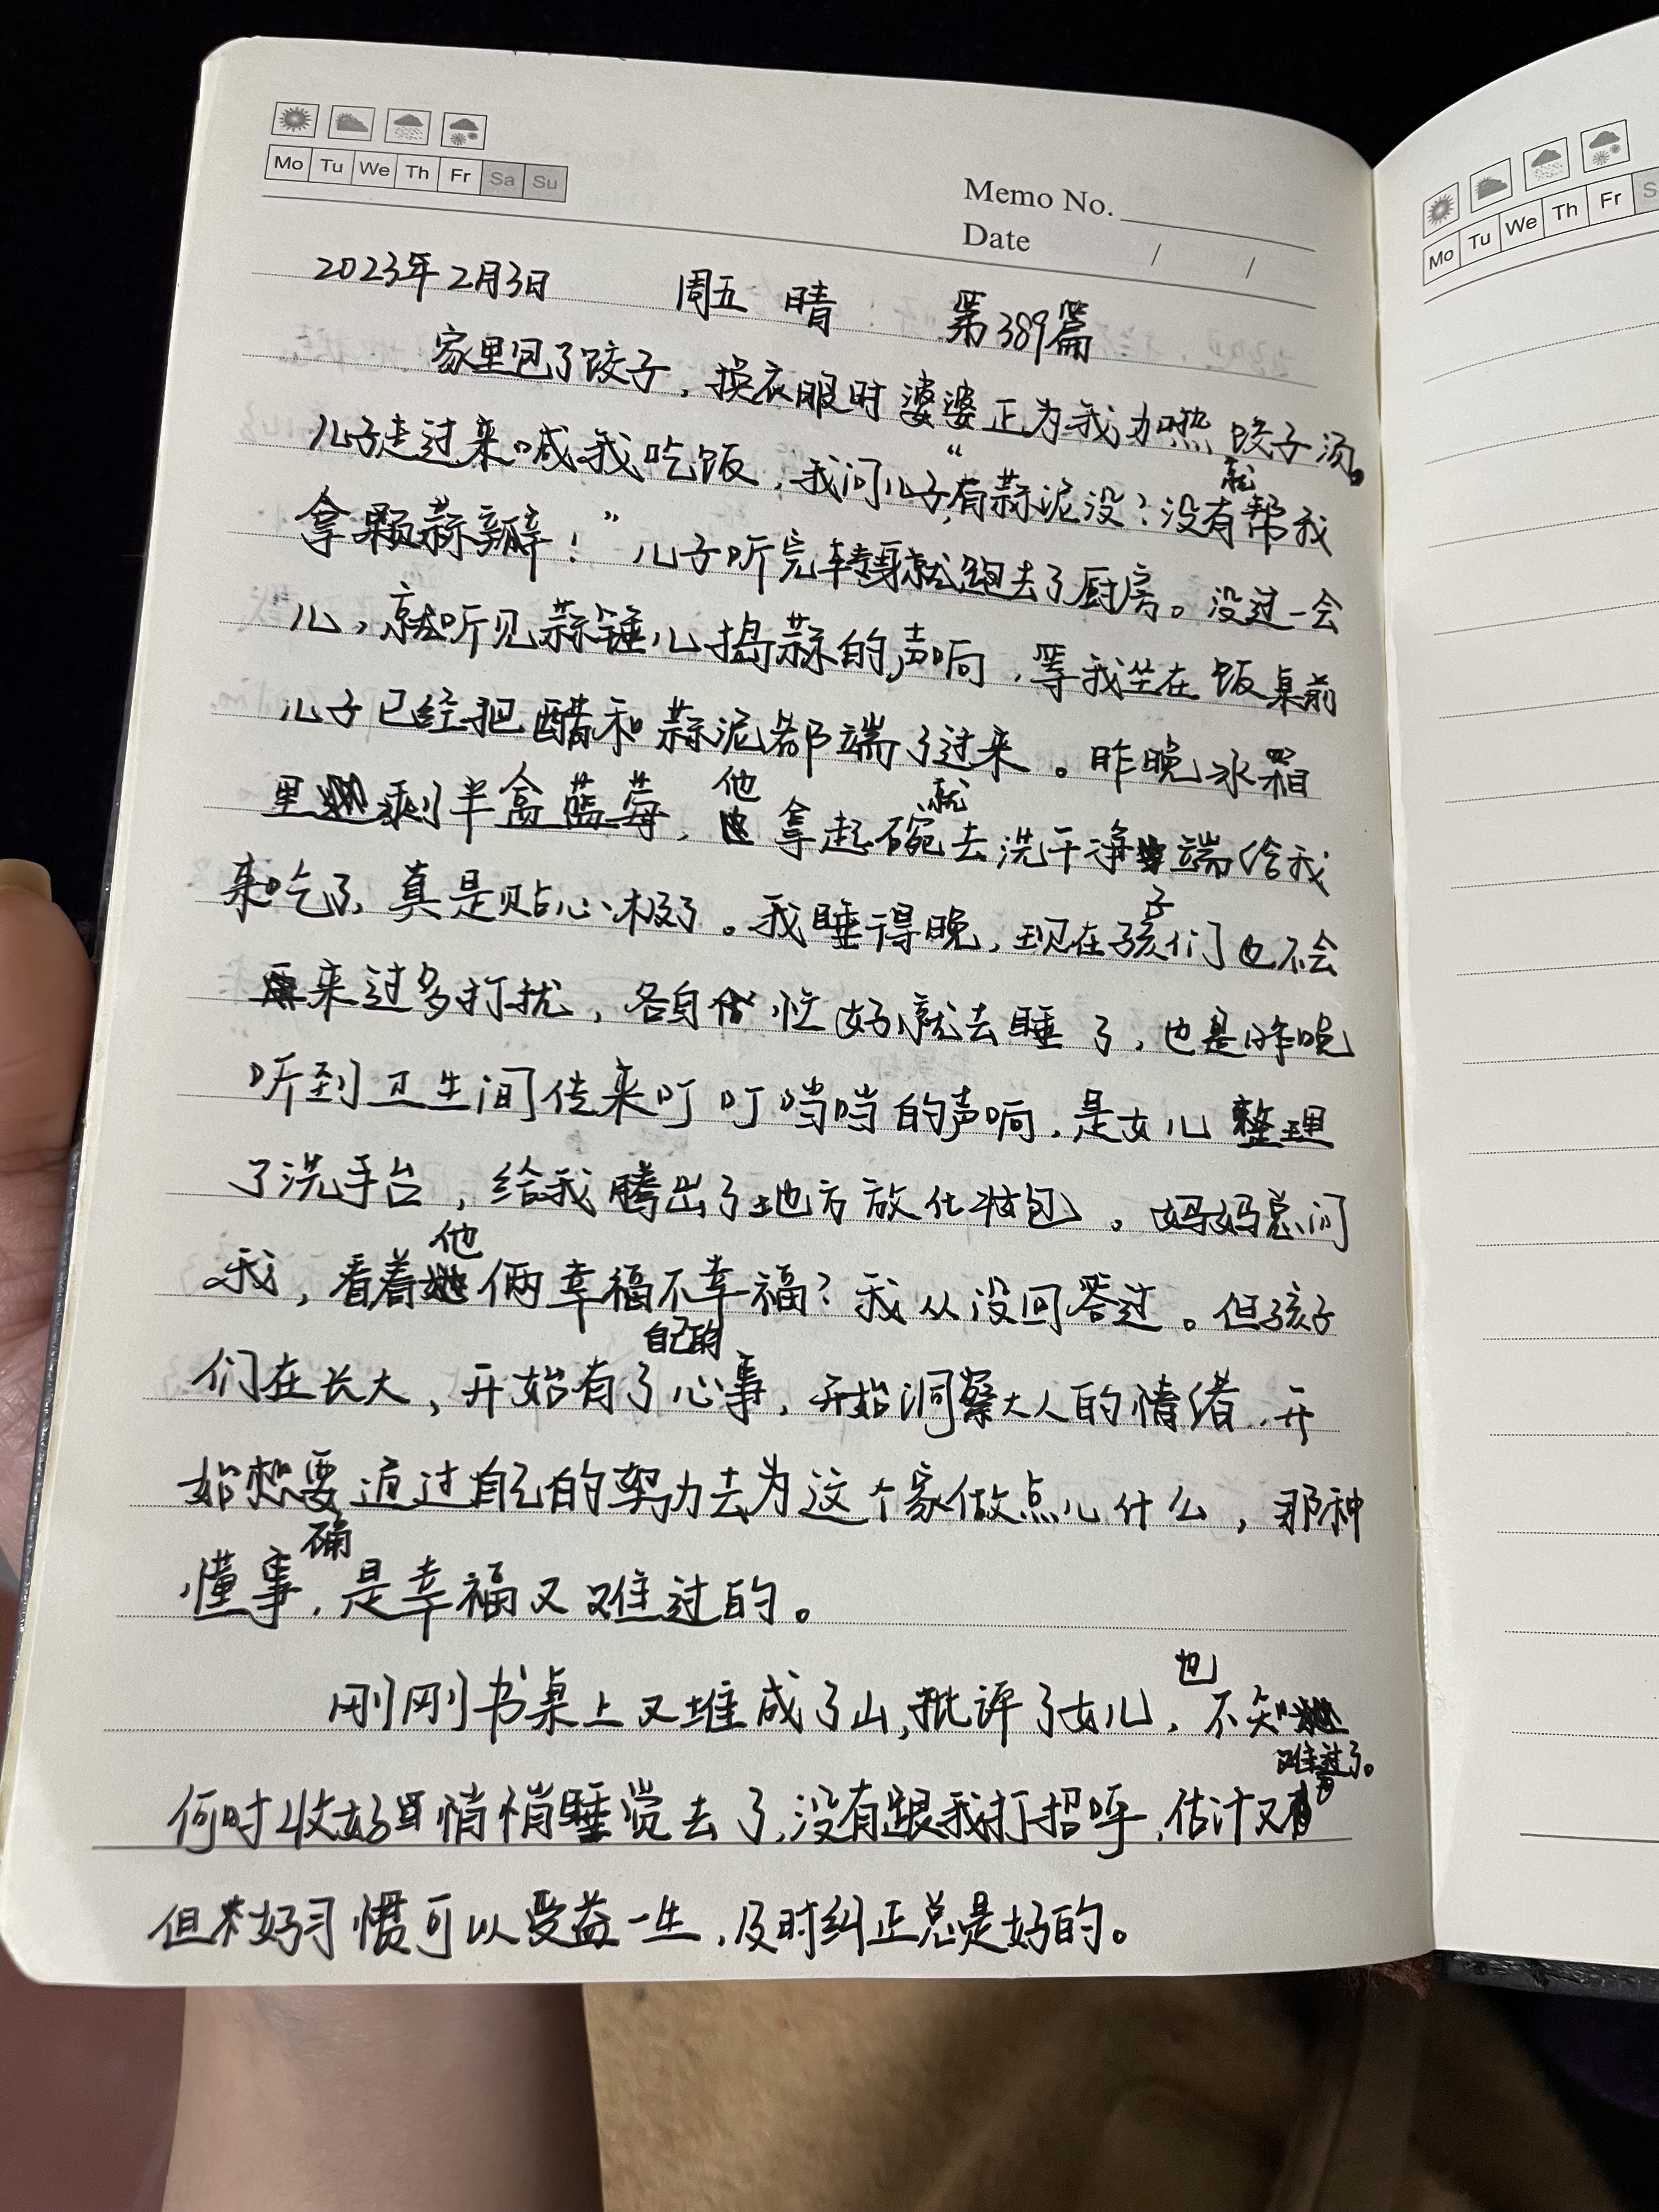 Mo Tu We Th Fr Sa Su
Memo No.
Date / /
2023年2月3日 周五 晴 第389篇
家里包了饺子，换衣服时婆婆正为我加热饺子汤。
儿子走过来喊我吃饭，我问儿子“有蒜泥没？没有就帮我
拿颗蒜瓣！”儿子听完转身就跑去了厨房。没过一会
儿，就听见蒜锤儿捣蒜的声响，等我坐在饭桌前
儿子已经把醋和蒜泥都端了过来。昨晚冰箱
里剩半盒蓝莓，他拿起碗就去洗干净端给我
来吃了，真是贴心极了。我睡得晚，现在孩子们也不会
来过多打扰，各自忙好就去睡了，也是昨晚
听到卫生间传来叮叮当当的声响，是女儿整理
了洗手台，给我腾出了地方放化妆包。妈妈总问
我，看着他俩幸福不幸福？我从没回答过。但孩子
们在长大，开始有了自己的心事，开始洞察大人的情绪，开
始想要通过自己的努力去为这个家做点儿什么，那种
懂事，确是幸福又难过的。
刚刚书桌上又堆成了山，批评了女儿，也不知
何时收好悄悄睡觉去了，没有跟我打招呼，估计又难过了。
但好习惯可以受益一生，及时纠正总是好的。
Mo Tu We Th Fr S